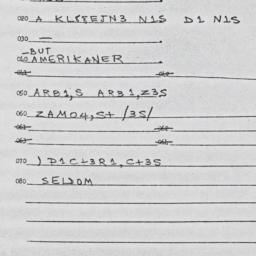 020 A KL8TEJN3 N1S D1 N1S
030 —
-BUT
040 AMERIKANER
050 ARB1,S ARB1,Z3S
060 ZAMO4,S+ /3S/
070 ) D1CL3R1,C+3S
080 SELDOM